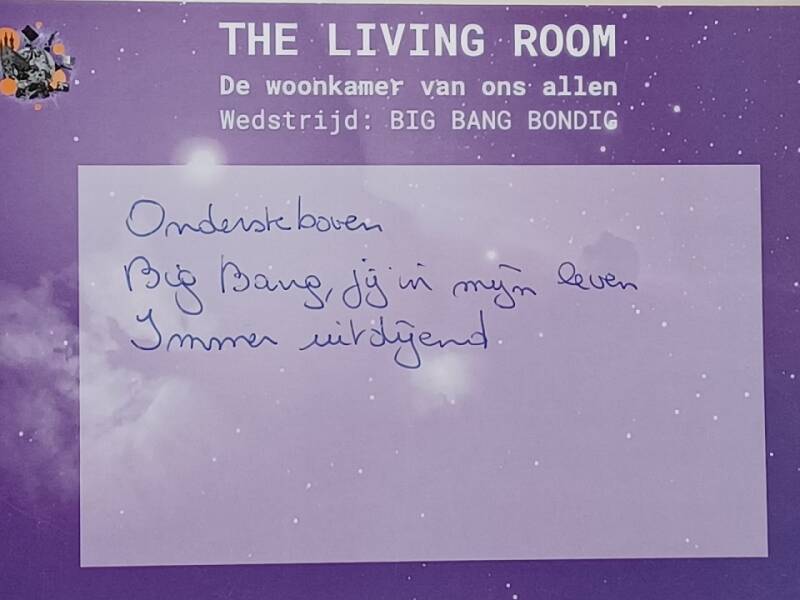 THE LIVING ROOM
De woonkamer van ons allen
Wedstrijd: BIG BANG BONDIG
Ondersteboven
Big Bang, jij in mijn leven
Immer uitdijend